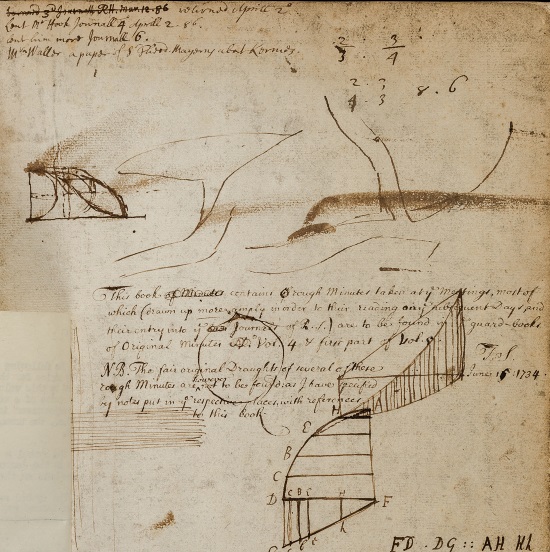 returned Aprile 2º
Lent Mr Hook Journall 4 Aprile 2 86.
Lent him more Journall 6.
Mr Waller a paper of Sr Theod Mayerns about Kermes.
2 3
3 4
2 . 3
4 . 3
8 . 6
This book of Minutes contains Rough Minutes taken at ye Meetings, most of
which (drawn up more amply in order to their reading on ye subsequent Days and
their entry into ye Journ of R.S.) are to be found in ye guard-books
of Original Minutes Vol. 4 & first part of Vol. 5
June 15 1734.
N.B. The fair original Draughts of several of these
rough Minutes are not to be found as I have specified
by notes put in ye respective places, with references
to this book
H A
E
B
C
D C B E H F
h
FD . DG :: AH Hh